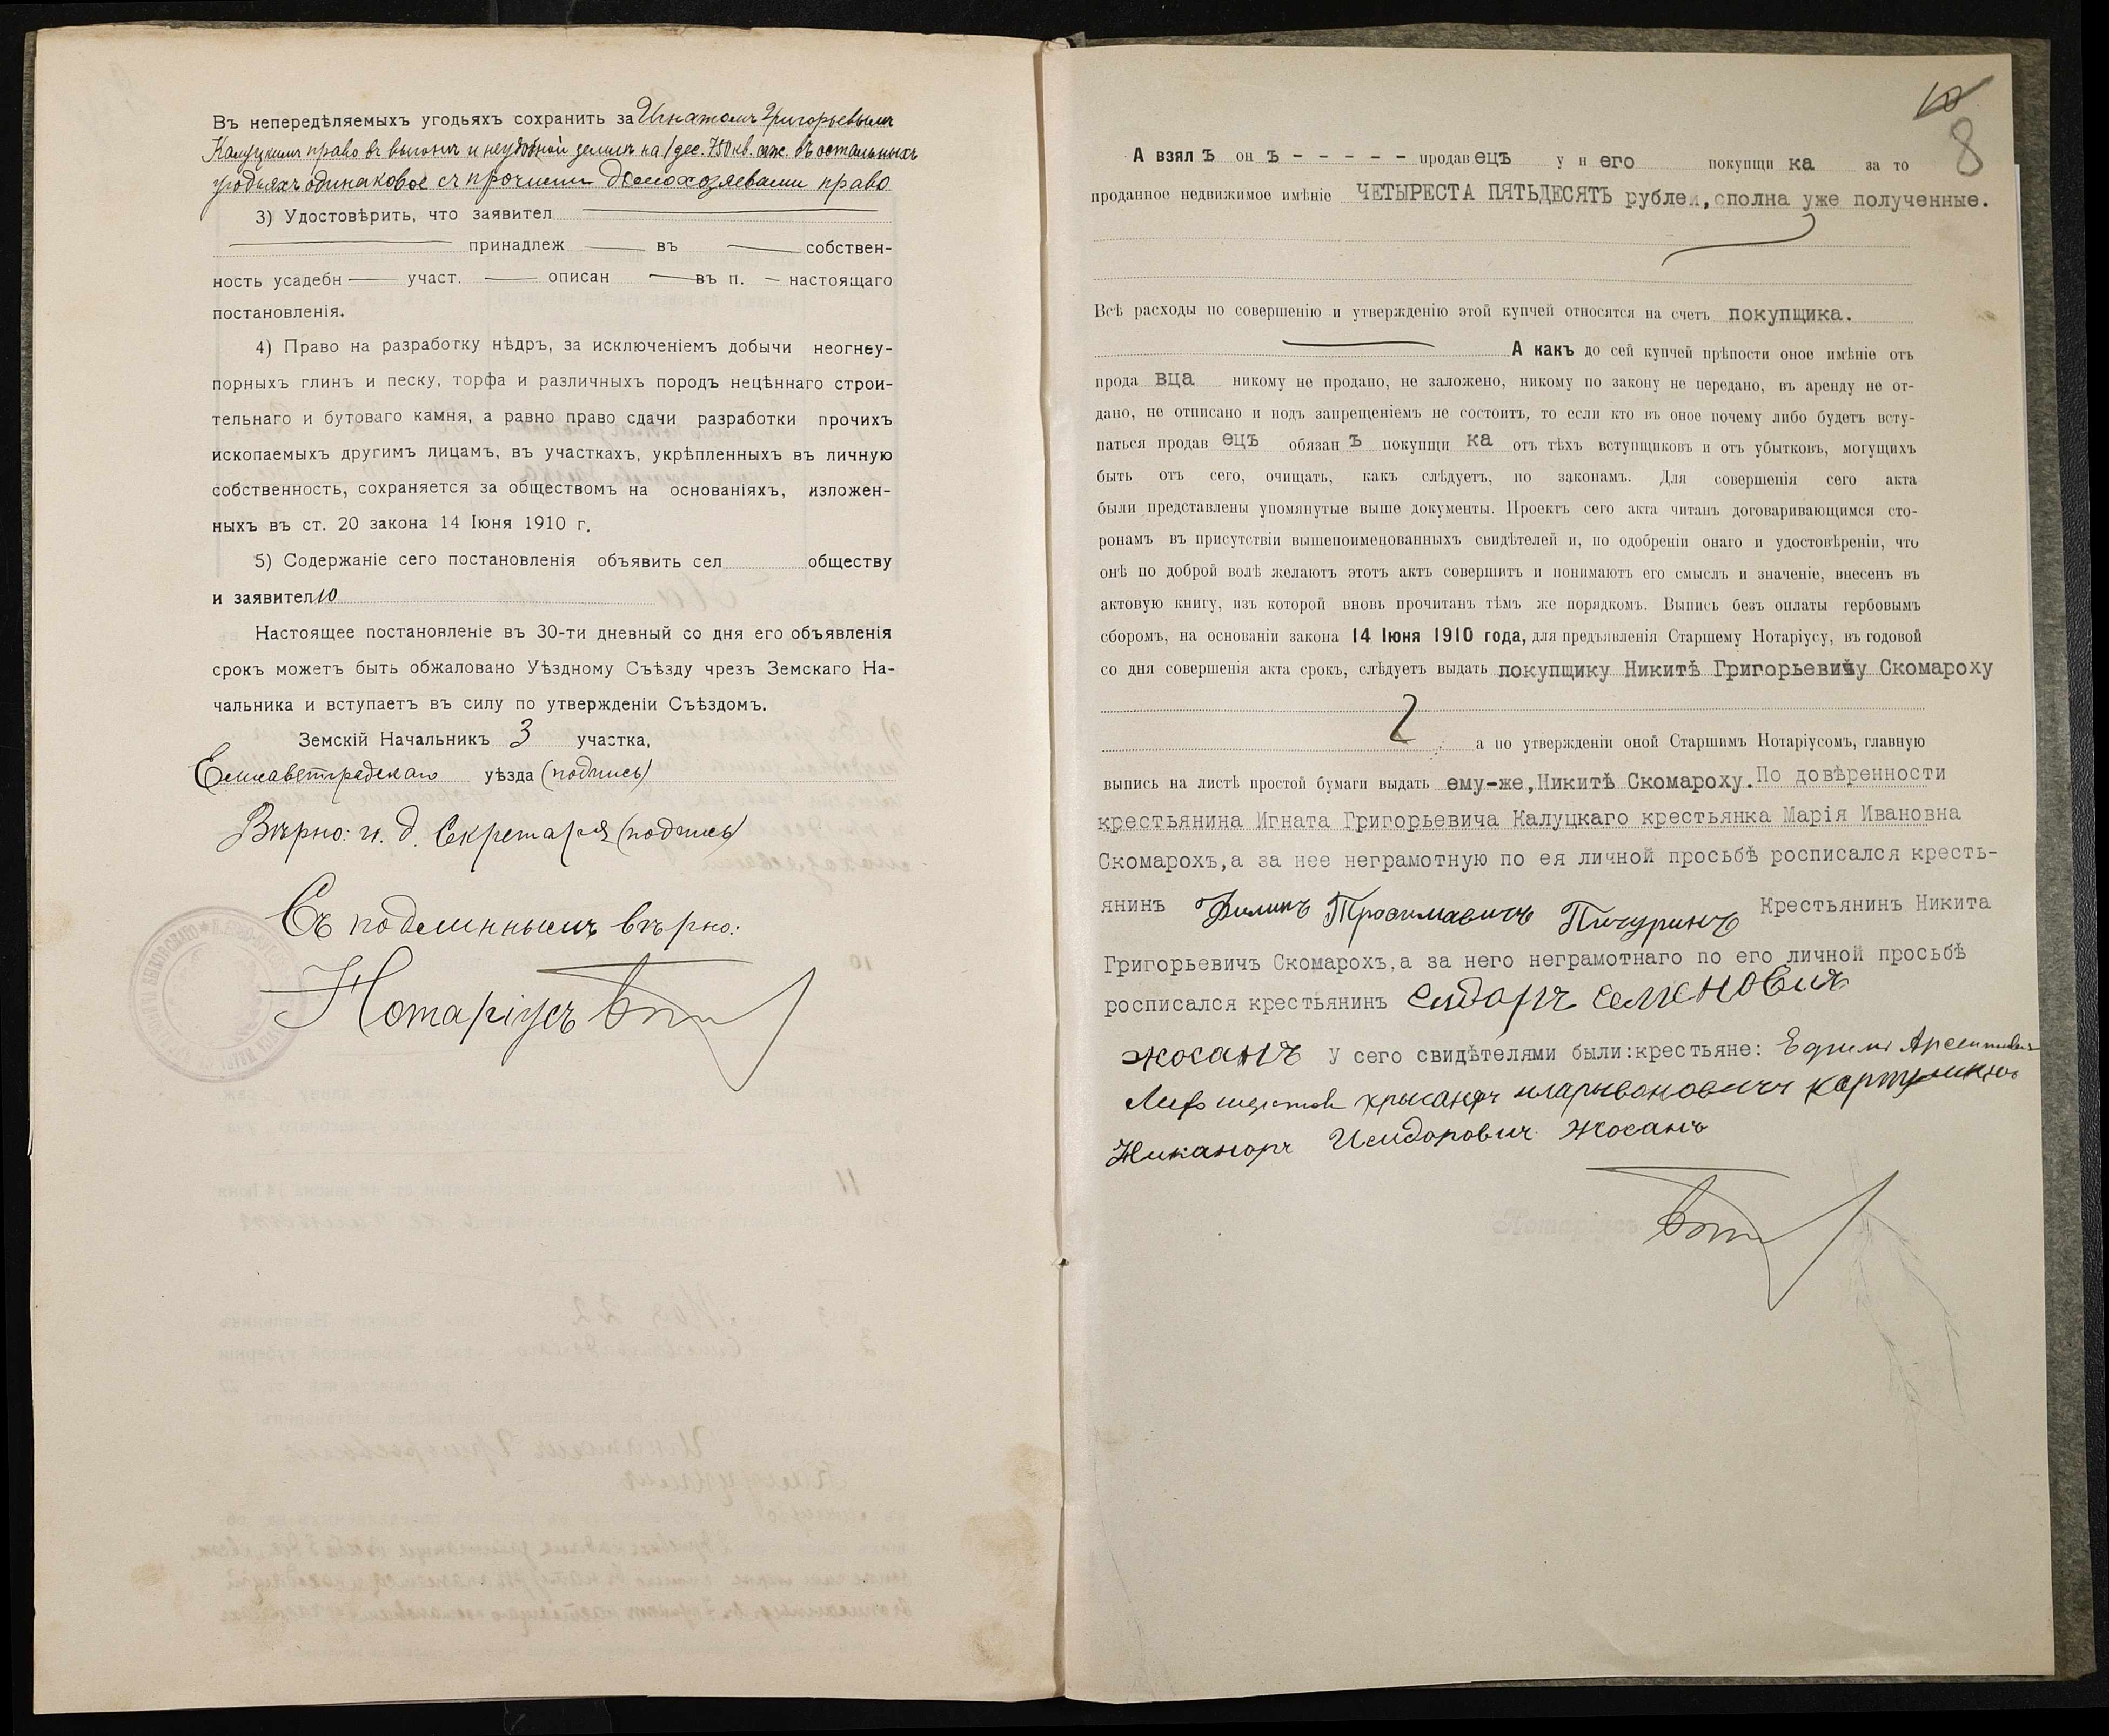 Въ непередѣляемыхъ угодьяхъ сохранить за Игнатомъ Григорьевымъ
Калуцкимъ право въ выгонѣ и неудобной землѣ на 1 дес. 750 кв. саж. въ остальныхъ
угодьяхъ одинаковое съ прочими домохозяевами право
3) Удостовѣрить, что заявител
принадлеж въ собствен-
ность усадебн участ. описан въ п. настоящаго
постановленія.
4) Право на разработку нѣдръ, за исключеніемъ добычи неогнеу-
порныхъ глинъ и песку, торфа и различныхъ породъ нецѣннаго строи-
тельнаго и бутоваго камня, а равно право сдачи разработки прочихъ
ископаемыхъ другимъ лицамъ, въ участкахъ, укрѣпленныхъ въ личную
собственность, сохраняется за обществомъ на основаніяхъ, изложен-
ныхъ въ ст. 20 закона 14 Іюня 1910 г.
5) Содержаніе сего постановленія объявить сел обществу
и заявителю
Настоящее постановленіе въ 30-ти дневный со дня его объявленія
срокъ можетъ быть обжаловано Уѣздному Съѣзду чрезъ Земскаго На-
чальника и вступаетъ въ силу по утвержденіи Съѣздомъ.
Земскій Начальникъ 3 участка,
Елисаветградскаго уѣзда (подпись)
Вѣрно: и. д. Секретаря (подпись)
Съ подлиннымъ вѣрно:
Нотаріусъ
10
8
А взялъ онъ - - - - - продавецъ у него покупщика за то
проданное недвижимое имѣніе ЧЕТЫРЕСТА ПЯТЬДЕСЯТЪ рублей, сполна уже полученные.
Всѣ расходы по совершенію и утвержденію этой купчей относятся на счетъ покупщика.
А какъ до сей купчей крѣпости оное имѣніе отъ
продавца никому не продано, не заложено, никому по закону не передано, въ аренду не от-
дано, не отписано и подъ запрещеніемъ не состоитъ, то если кто въ оное почему либо будетъ всту-
паться продавецъ обязанъ покупщика отъ тѣхъ вступщиковъ и отъ убытковъ, могущихъ
быть отъ сего, очищать, какъ слѣдуетъ, по законамъ. Для совершенія сего акта
были представлены упомянутые выше документы. Проектъ сего акта читанъ договаривающимся сто-
ронамъ въ присутствіи вышепоименованныхъ свидѣтелей и, по одобреніи онаго и удостовѣреніи, что
онѣ по доброй волѣ желаютъ этотъ актъ совершить и понимаютъ его смыслъ и значеніе, внесенъ въ
актовую книгу, изъ которой вновь прочитанъ тѣмъ же порядкомъ. Выпись безъ оплаты гербовымъ
сборомъ, на основаніи закона 14 Іюня 1910 года, для предъявленія Старшему Нотаріусу, въ годовой
со дня совершенія акта срокъ, слѣдуетъ выдать покупщику Никитѣ Григорьевичу Скомароху
а по утвержденіи оной Старшимъ Нотаріусомъ, главную
выпись на листѣ простой бумаги выдать ему-же, Никитѣ Скомароху. По довѣренности
крестьянина Игната Григорьевича Калуцкаго крестьянка Марія Ивановна
Скомарохъ, а за нее неграмотную по ея личной просьбѣ росписался кресть-
янинъ Филипъ Трофимавичъ Пичуринъ Крестьянинъ Никита
Григорьевичъ Скомарохъ, а за него неграмотнаго по его личной просьбѣ
росписался крестьянинъ Сидоръ Семеновичъ
Жосанъ У сего свидѣтелями были: крестьяне: Ефимъ
хрысанфъ
Никаноръ Исидоровичъ Жосанъ
Нотаріусъ